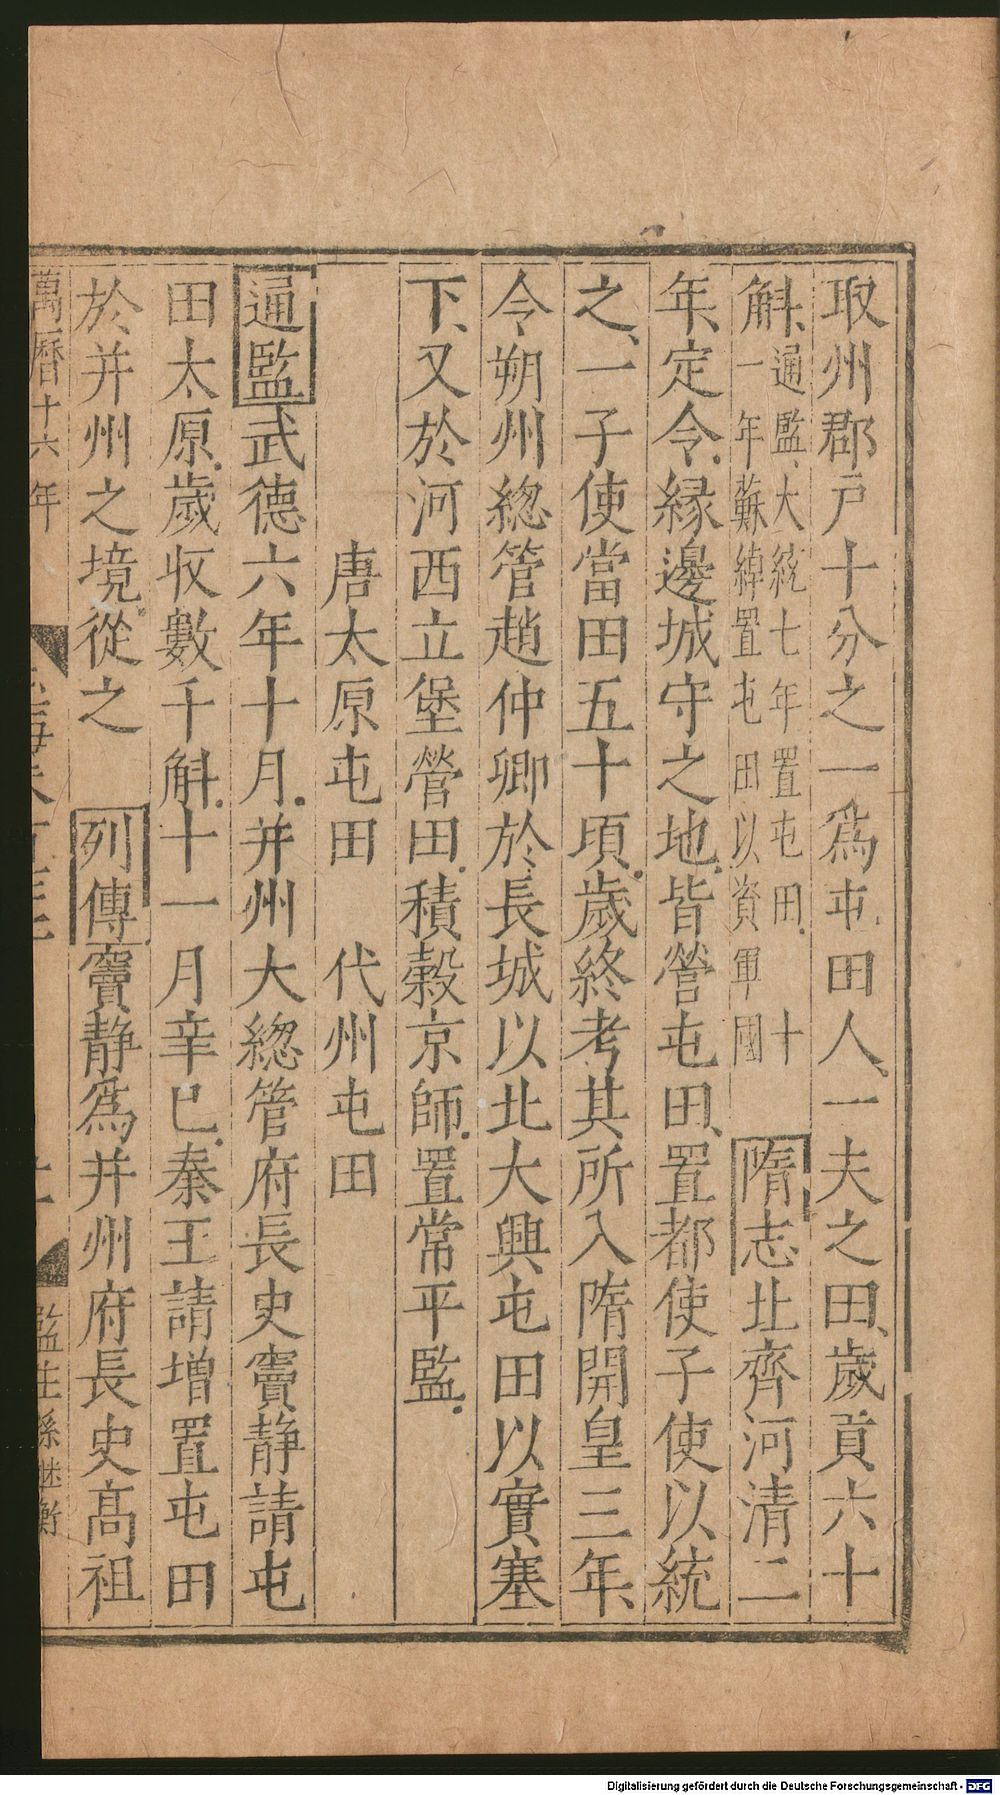 取州郡戸十分之一爲屯田人一夫之田歲貢六十
斛通監大統七年置屯田十
一年蘇綽置屯田以資軍國隋志北齊河清二
年定令緣邊城守之地皆營屯田置都使子使以統
之一子使當田五十頃歲終考其所入隋開皇三年
令朔州總管趙仲卿於長城以北大興屯田以實塞
下又於河西立堡營田積穀京師置常平監
唐太原屯田 代州屯田
通監武德六年十月并州大總管府長史竇静請屯
田太原歲収數千斛十一月辛巳秦王請增置屯田
於并州之境從之 列傳竇静爲并州府長史高祖
萬曆十六年
監生孫
Digitalisierung gefördert durch die Deutsche Forschungsgemeinschaft - DFG